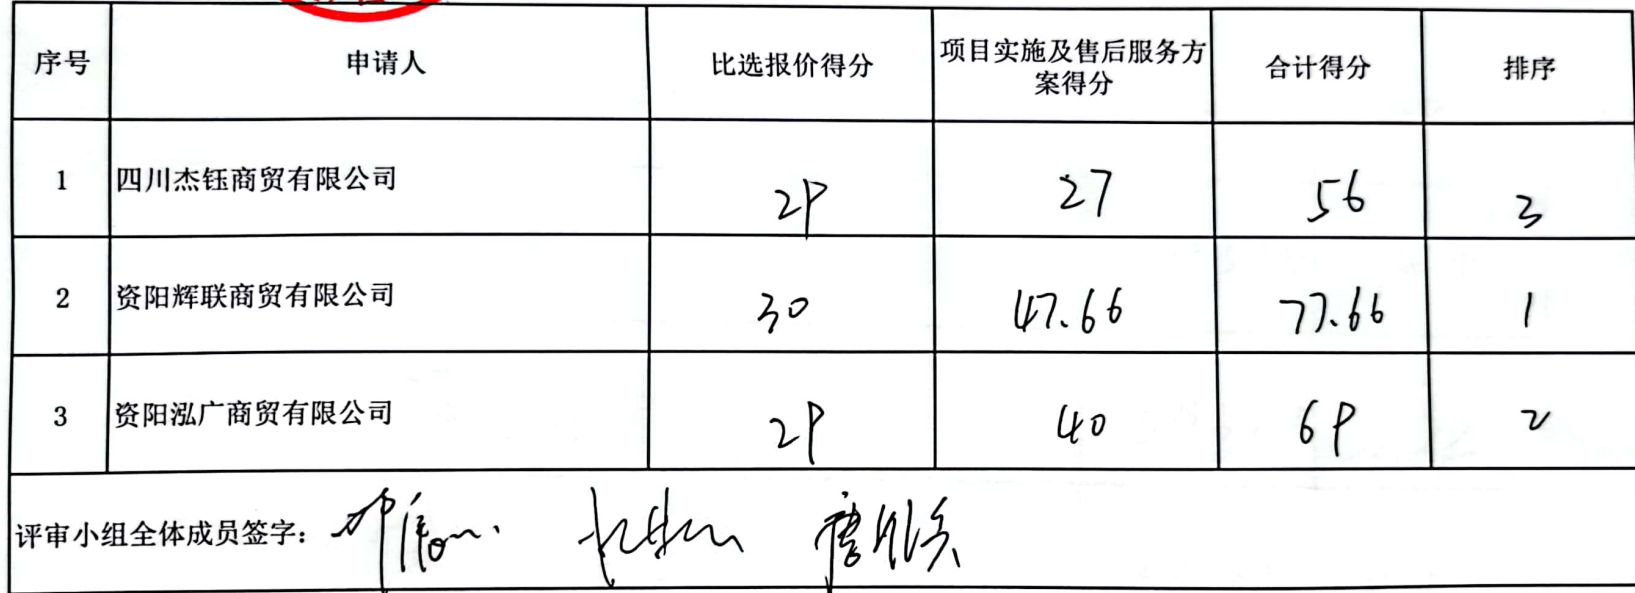 序号 申请人 比选报价得分 项目实施及售后服务方案得分 合计得分 排序
1 四川杰钰商贸有限公司 29 27 56 3
2 资阳辉联商贸有限公司 30 47.66 77.66 1
3 资阳泓广商贸有限公司 29 40 69 2
评审小组全体成员签字：